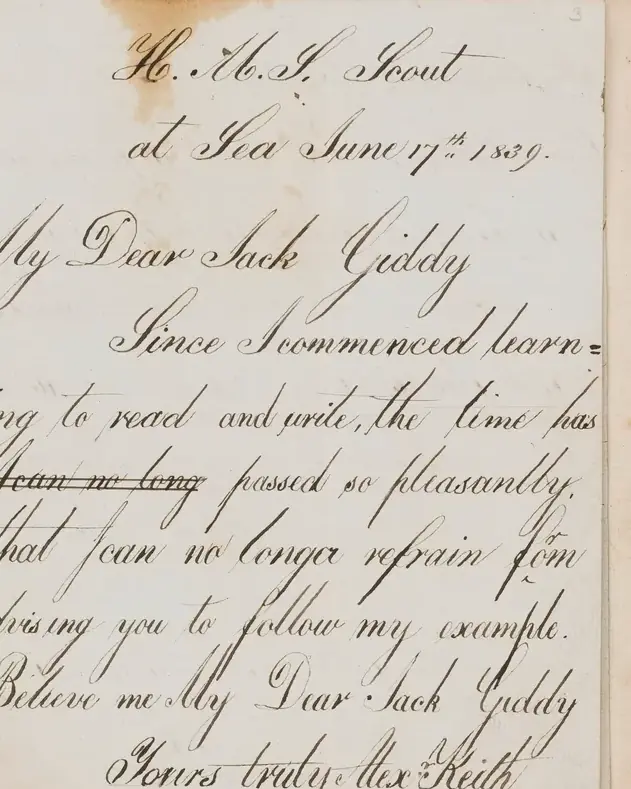 3
H. M. S. Scout
at Sea June 17th 1839.
My Dear Jack Giddy
Since I commenced learn=
ng to read and write, the time has
I can no long passed so pleasantly.
that I can no longer refrain form
dvising you to follow my example.
Believe me My Dear Jack Giddy
Yours truly Alexr Keith